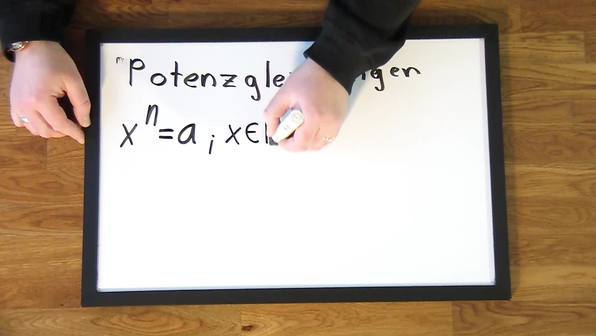 Potenzgle gen
xⁿ = a ; x ∈